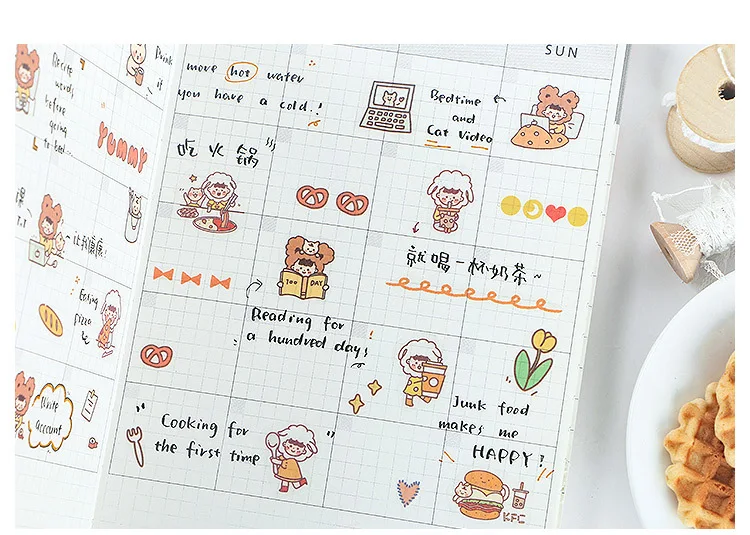 SUN
Recite
words
before
going
to bed
Drink
it
YUMMY
让我康康!
Eating
pizza
Write
Account
more hot water
you have a cold!
Bedtime
and
Cat Video
吃火锅
就喝一杯奶茶~
100 DAY
Reading for
a hundred days
Cooking for
the first time
Junk food
makes me
HAPPY!
KFC